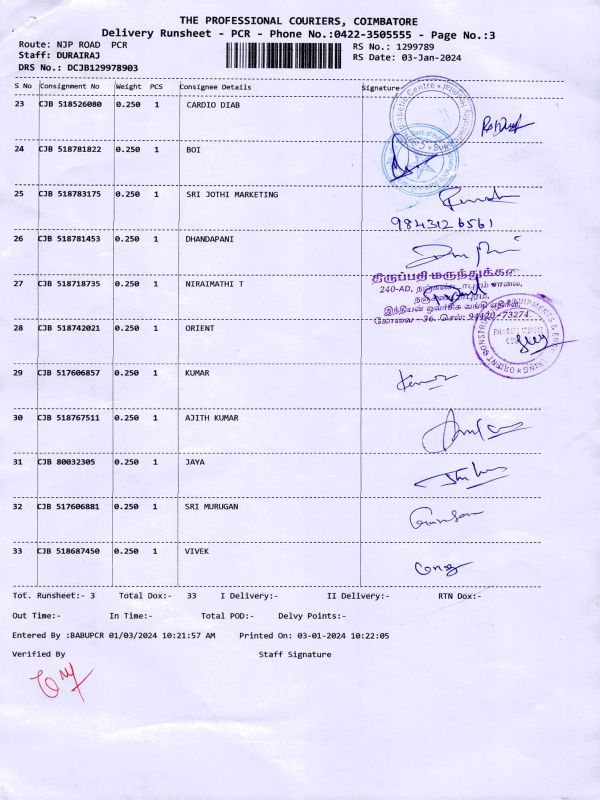 THE PROFESSIONAL COURIERS, COIMBATORE
Delivery Runsheet - PCR - Phone No.:0422-3505555 - Page No.:3
Route: NJP ROAD PCR
RS No.: 1299789
Staff: DURAIRAJ
RS Date: 03-Jan-2024
DRS No.: DCJB129978903
S No Consignment No Weight PCS Consignee Details Signature
23 CJB 518526080 0.250 1 CARDIO DIAB
24 CJB 518781822 0.250 1 BOI
25 CJB 518783175 0.250 1 SRI JOTHI MARKETING
9843126561
26 CJB 518781453 0.250 1 DHANDAPANI
திருப்பதி மருந்துக்க
27 CJB 518718735 0.250 1 NIRAIMATHI T
240-AD,
கோவை - 36. செல்: 94420-73274
28 CJB 518742021 0.250 1 ORIENT
29 CJB 517606857 0.250 1 KUMAR
Kumar
30 CJB 518767511 0.250 1 AJITH KUMAR
31 CJB 80032305 0.250 1 JAYA
32 CJB 517606881 0.250 1 SRI MURUGAN
33 CJB 518687450 0.250 1 VIVEK
Tot. Runsheet:- 3 Total Dox:- 33 I Delivery:- II Delivery:- RTN Dox:-
Out Time:- In Time:- Total POD:- Delvy Points:-
Entered By :BABUPCR 01/03/2024 10:21:57 AM Printed On: 03-01-2024 10:22:05
Verified By Staff Signature